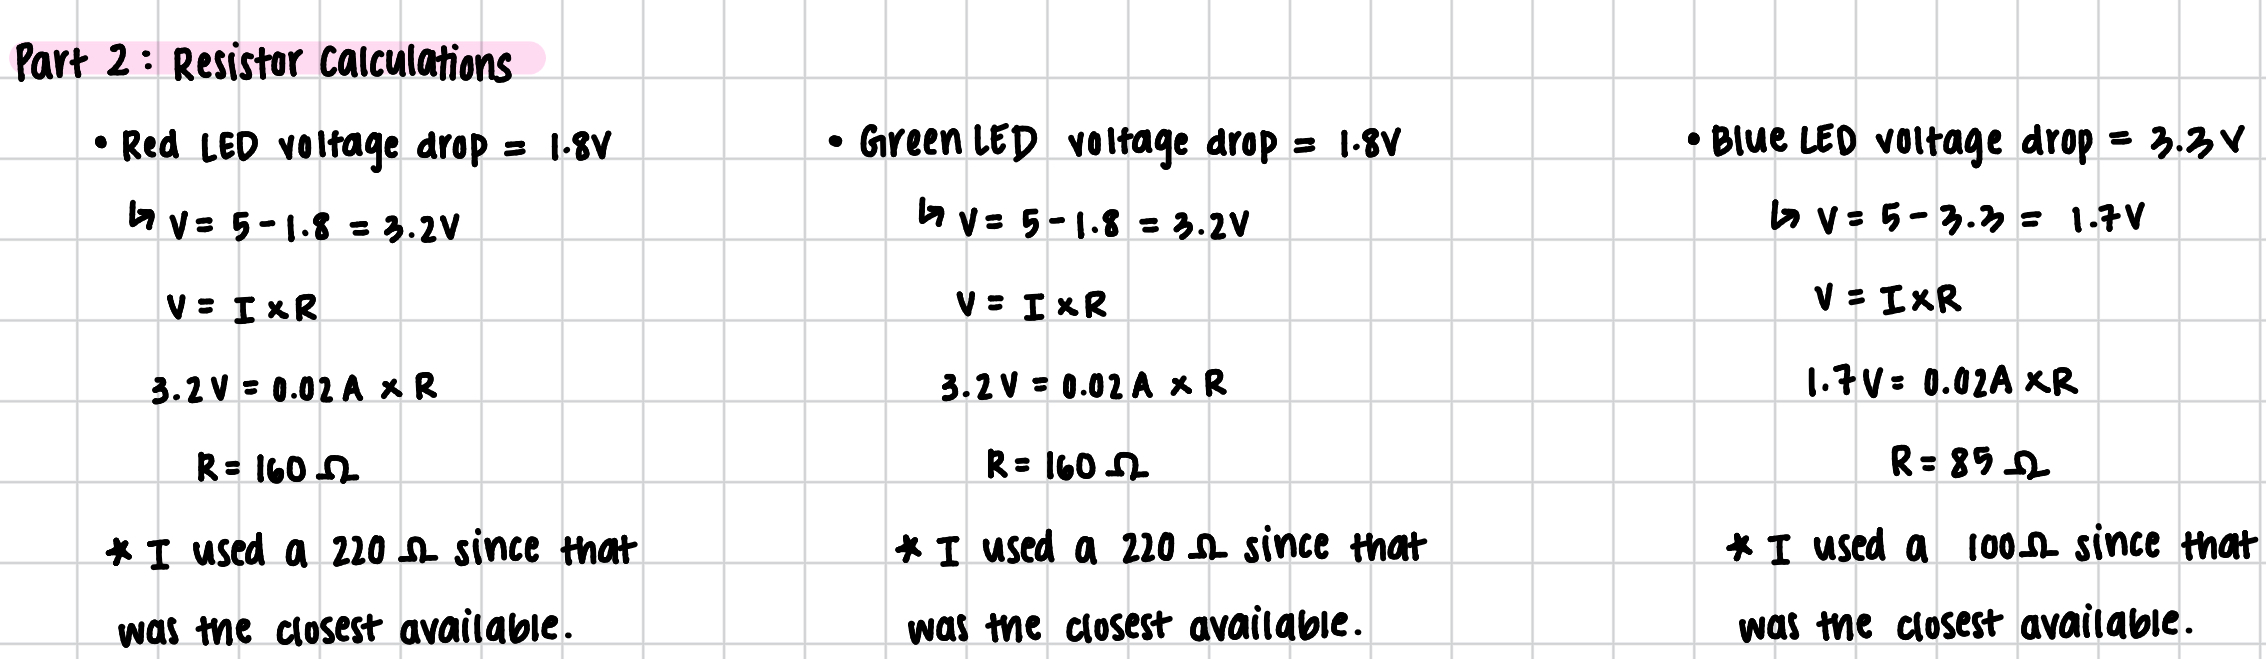 Part 2: Resistor Calculations
• Red LED voltage drop = 1.8V
↳ V = 5 - 1.8 = 3.2V
V = I x R
3.2V = 0.02A x R
R = 160 Ω
* I used a 220 Ω since that
was the closest available.
• Green LED voltage drop = 1.8V
↳ V = 5 - 1.8 = 3.2V
V = I x R
3.2V = 0.02A x R
R = 160 Ω
* I used a 220 Ω since that
was the closest available.
• Blue LED voltage drop = 3.3V
↳ V = 5 - 3.3 = 1.7V
V = I x R
1.7V = 0.02A x R
R = 85 Ω
* I used a 100Ω since that
was the closest available.